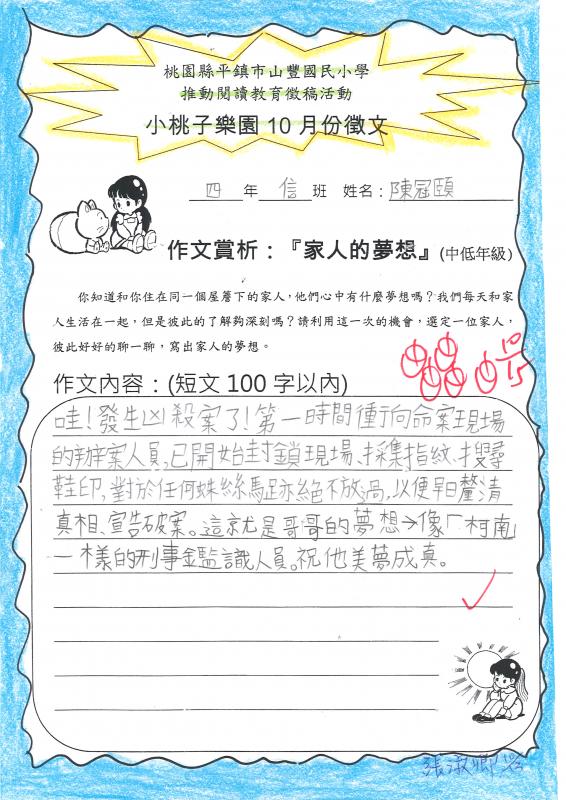 桃園縣平鎮市山豐國民小學
推動閱讀教育徵稿活動
小桃子樂園10月份徵文
四 年 信 班 姓名:陳冠頤
作文賞析:『家人的夢想』(中低年級)
你知道和你住在同一個屋簷下的家人,他們心中有什麼夢想嗎?我們每天和家
人生活在一起,但是彼此的了解夠深刻嗎?請利用這一次的機會,選定一位家人,
彼此好好的聊一聊,寫出家人的夢想。
10/15
作文內容:(短文100字以內)
哇!發生凶殺案了!第一時間衝向命案現場
的辦案人員,已開始封鎖現場、採集指紋、搜尋
鞋印,對於任何蛛絲馬跡絕不放過,以便早日釐清
真相、宣告破案。這就是哥哥的夢想→像「柯南」
一樣的刑事鑑識人員。祝他美夢成真。
張淑卿